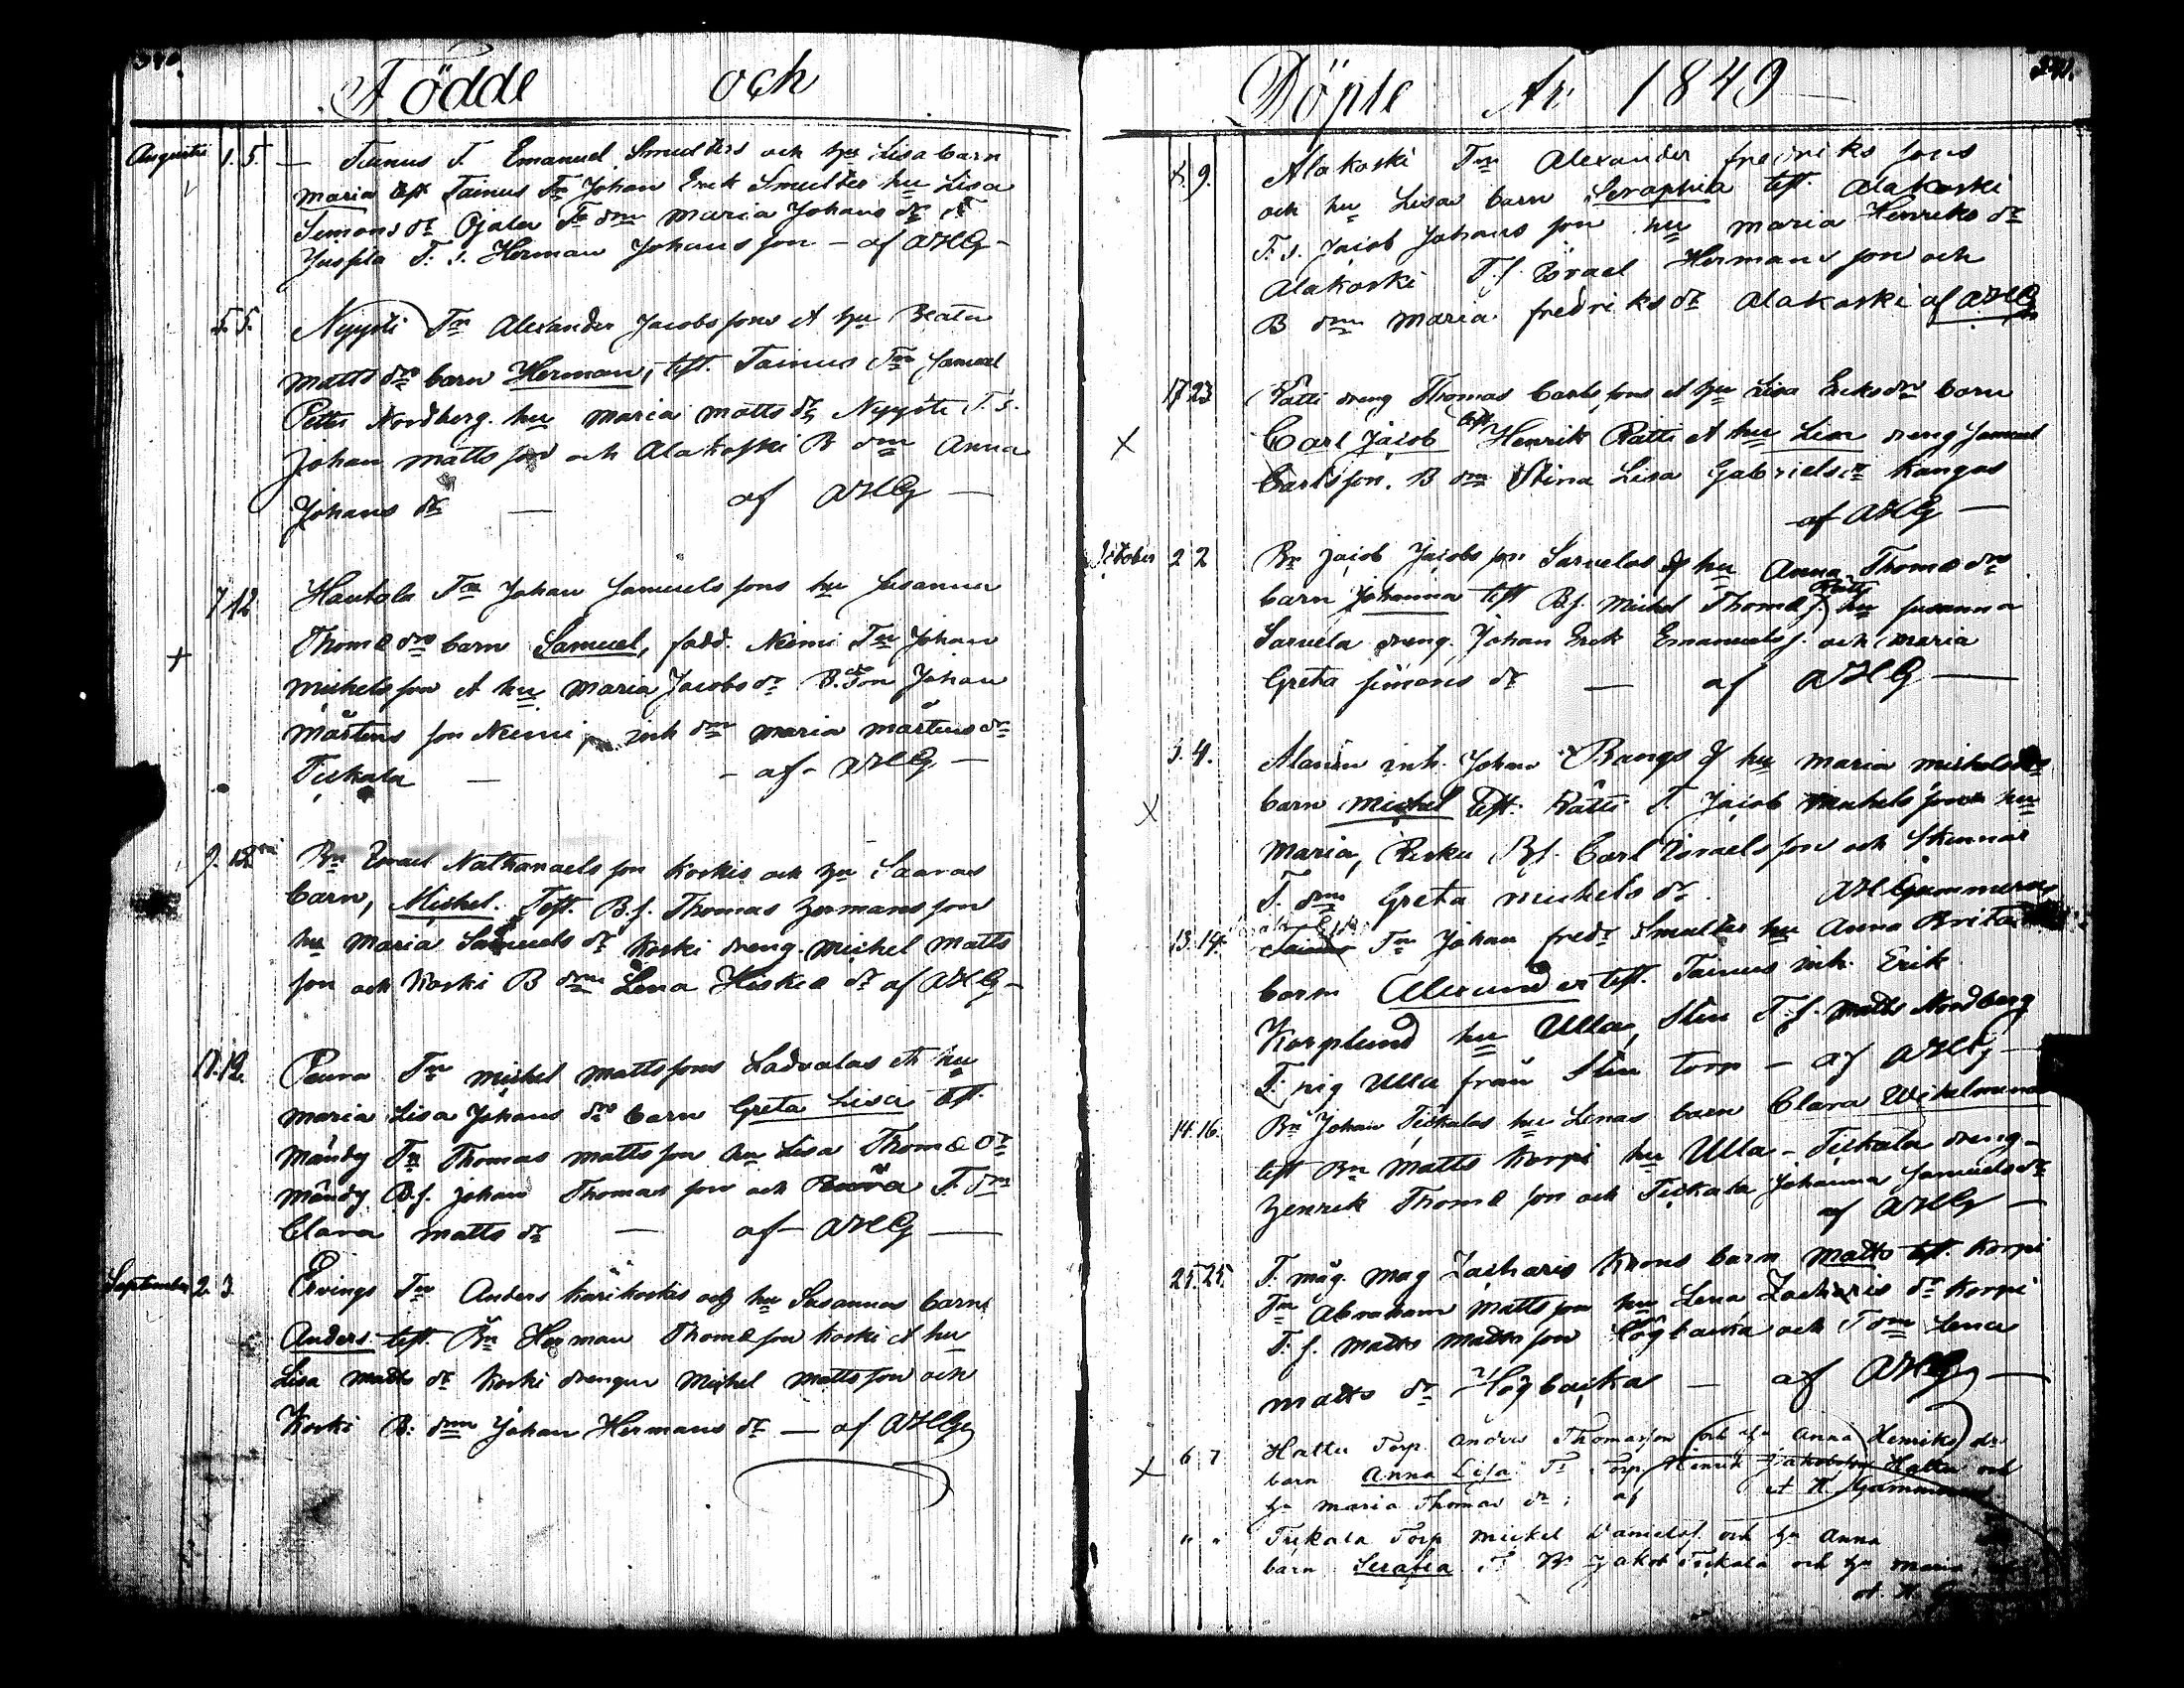 Födde och
Augusti 1. 5. — Tainus T. Emanuel Smulters och hu Lisa barn
Maria test Tainus Tn Johan Erik Smulter hu Lisa
Simons dr Ojala Tn dm Maria Johans dr
T. s. Herman Johans son — af AHG —
5. 5. Nyysti Tn Alexander Jacobs sons et hu Beata
Matts drs barn Herman, test. Tainus Tn Samuel
Petter Nordberg. hu Maria Matts dr, Nyysti T. s.
Johan Matts son och Alakoski B dm Anna
Johans dr — af AHG —
7 12 Hautala Tn Johan Samuels sons hu Susanna
Thomæ drs barn Samuel, fadd. Niemi Tn Johan
Michels son et hu Maria Jacobs dr B. son Johan
Mårtens son Niemi, inh dm Maria Mårtens dr
Tiskala — — af AHG —
9. 12 Bn Israel Nathanaels son Koskis och hu Saaras
barn, Michel. Test. B.s. Thomas Hermans son
hu Maria Samuels dr Koski dreng. Michel Matts
son och Koski B dm Lena Hiskiæ dr af AHG —
17. 19. Peura Tn Michel Matts sons Ladvalas et hu
Maria Lisa Johans drs barn Greta Lisa test.
Måndy Tn Thomas Matts son hu Lisa Thomæ dr
Måndy B.s. Johan Thomas son och T. dm
Clara Matts dr — af AHG —
September 2. 3. Ervings Tn Anders Karikoskis och hu Susannas barn
Anders test. Bn Herman Thomæ son Koski et hu
Lisa Matts dr Koski drengen Michel Matts son och
Koski B: dm Johan Hermans dr — af AHG
Döpte År 1849
8. 9. Alakoski Tn Alexander Fredriks sons
och hu Lisas barn Seraphia test. Alakoski
T. s. Jacob Johans son hu Maria Henriks dr
Alakoski T.s. Israel Hermans son och
B dm Maria Fredriks dr Alakoski af AHG
17 23 Råtti dreng Thomas Carls sons et hu Lisa Ericks dr barn
Carl Jacob test Henrik Råtti et hu Lisa dreng Samuel
Carls son. B dm Stina Lisa Gabriels dr Kangas
af AHG —
October 2 2 Bn Jacob Jacobs son Sarvelas & hu Anna Thomæ drs
barn Johanna test B.s. Michel Thomæ s. Råtti hu Susanna
Sarvela dreng. Johan Erik Emanuels s. och Maria
Greta Simons dr — af AHG —
3. 4. inh. Johan Bangs & hu Maria Michels drs
barn Michel test. Råtti T. Jacob Michels son hu
Maria, B.s. Carl Israels son och
T. dm Greta Michels dr. AHGummerus
13. 14. Tn Johan Fredr Smulter hu Anna Brita
barn Alexander test. Tainus inh. Erik
Korplund hu Ulla, Slin T.s. Matts Nordberg
T: pig Ulla från Slin torp — af AHG
14. 16. Bn Johan Tiskalas hu Lenas barn Clara Wilhelmina
test Bn Matts Korpi hu Ulla — Tiskala dreng —
Henrik Thomæ son och Tiskala Johanna Samuels dr
af AHG —
25. 25. T. måg. Mag Zacharis Krons barn Matts test. Korpi
Tn Abraham Matts son hu Lena Zacharis dr Korpi
T. s. Matts Matts son Högbacka och T dm Lena
Matts dr Högbacka — af AHG —
6 7 Hattu Torp. Anders Thomasson och hu Anna Henriks dr
barn Anna Lisa T: Torp Henrik Jakobsson Hattu och
hu Maria Thomas dr; af A H Gummerus
" " Tiskala Torp Mickel Daniels s. och hu Anna
barn Serafia T: Bn Jakob Tiskala och hu Maria,
A. H. G